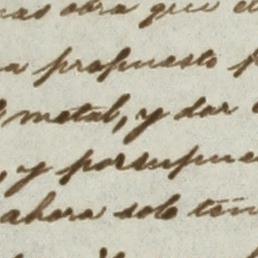 mas obra que e
a propuesto p
l metal, y dar
, y porsupue
ahora solo ten